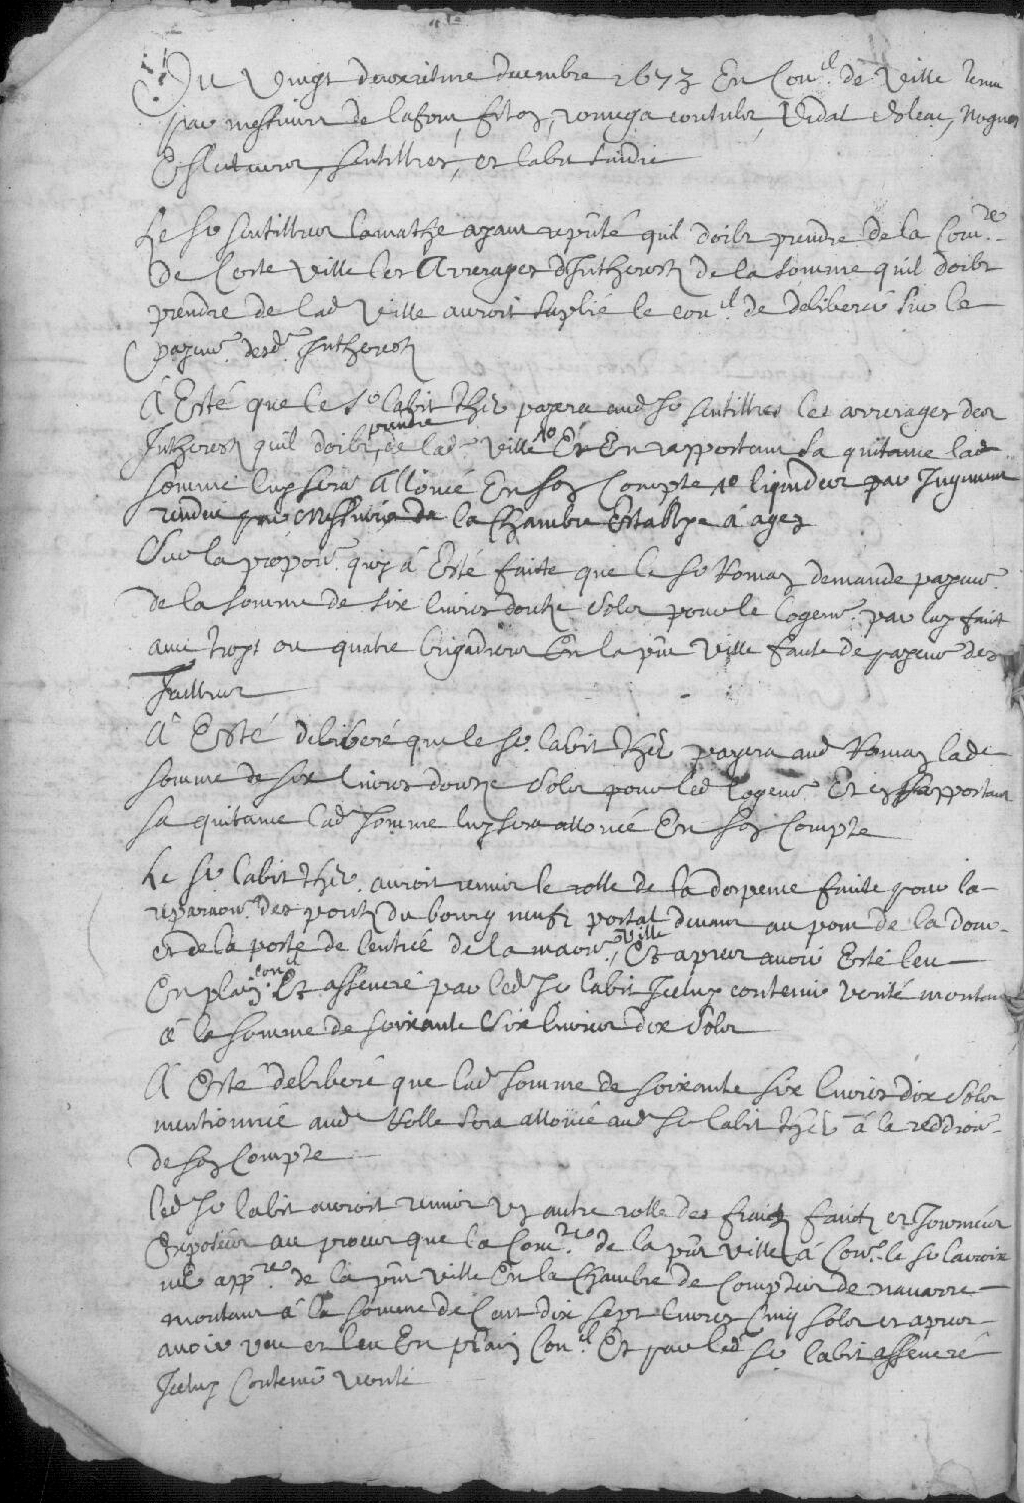 Du Vingt deuxieme decembre 1673 En Con.el de Ville tenu
par messieurs de lafont, fitoz, romega consuls, Vidal
sentilhes, et labit sindic
Le Sr sentilhes lamathe ayant repnté quil doibt prendre de la Com.te
de Ceste Ville les Arrerages d'Intherestz de la somme quil doibt
prendre de lad Ville auroit suplié le con.el de deliberer sur le
payem.t desd.s Intherestz
A Esté que le Sr labit thr payera aud Sr sentilhes les arrerages des
Intherestz quil doibt prendre de lad. Ville Et En rapportant sa quitance lad
somme luy sera Allouée En son Compte liquidez par Jugement
rendu par Messieurs de la Chambre Establye á agen
Sur la propon. quy á Esté faite que le Sr Romaz demande payem.t
de la somme de six livres douze Solz pour le logem.t par luy fait
avec troys ou quatre brigadiers En la pnt Ville faute de payem.t des
Tailhes
A Esté deliberé que le Sr. labit thr payera aud Romaz lade
somme de six livres douze Solz pour led logem.t Et en Rapportant
sa quitance lad somme luy sera allouée En son Compte
Le Sr labit thr. auroit remis le rolle de la despence faite pour la
reparaon. des pontz du bourg neuf, portal devant au pont de la
et de la porte de l'entrée de la maon. Ville, Et apres avoir Esté leu
En plain con.el Et asseuré par led Sr labit Icelluy contenir verité montant
á la somme de soixante Six livres dix Solz
A Esté deliberé que lad somme de soixante six livres dix Solz
mentionnée aud Rolle sera allouée aud Sr labit thr á la reddion.
de son Compte
led Sr labit auroit remis un autre rolle des fraictz faictz et Journées
Expozées au proces que la Com.te de la pnt Ville á Con.e le Sr lacroix
app.re de la pnt Ville En la Chambre de Comptes de navarre
montant á la somme de Cent dix sept livres Cinq solz et apres
avoir veu et leu En plain Con.el Et par led Sr labit asseuré
Icelluy Contenir verité